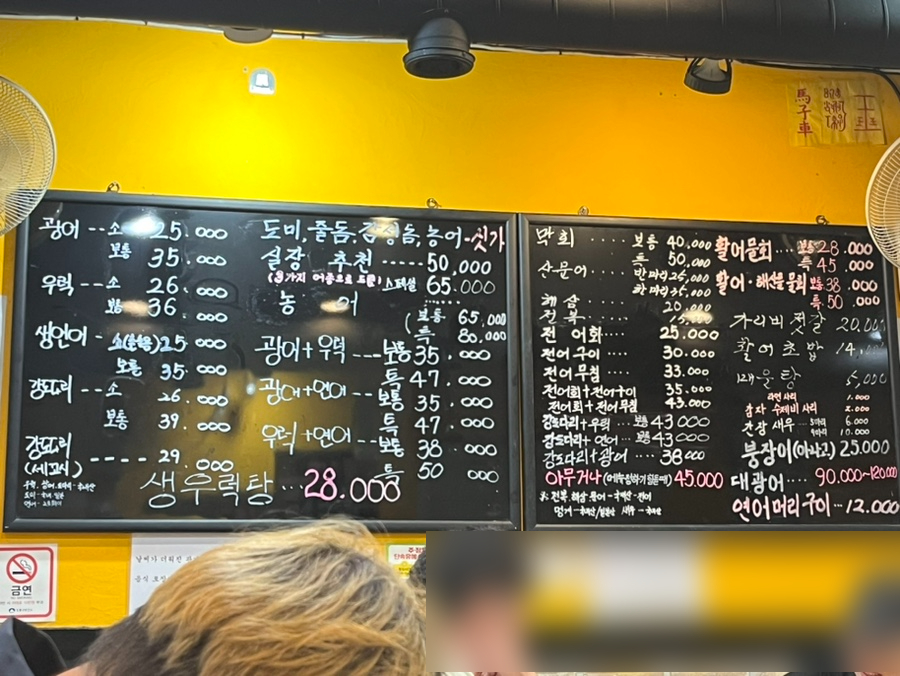 광어 -- 소 25.000
보통 35.000
우럭 -- 소 26.000
보통 36.000
생연어 -- 소 25.000
보통 35.000
강도다리 -- 소 26.000
보통 39.000
강도다리
(세꼬시) ---- 29.000
도미, 줄돔, 감성돔, 농어 - 싯가
실장 추천 ----- 50,000
(3가지 어종으로 드림) 스페셜 65.000
농 어
(보통 65,000
특 80,000
광어+우럭 --- 보통 35.000
특 47.000
광어+연어 -- 보통 35.000
특 47.000
우럭+연어 -- 보통 38.000
특 50.000
생우럭탕 ... 28.000
막회 ····· 보통 40,000
특 50,000
산문어 ···· 반마리 25,000
한마리 45,000
해삼
20.000
전복
전어회 25.000
전어구이 30.000
전어무침 33.000
전어회+전어구이 35.000
전어회+전어무침 43.000
강도다리+우럭 보통 43000
강도다리+연어 보통 43000
강도다리+광어 38000
아무거나 45.000
활어물회 보통 28.000
특 45.000
활어·해산물 물회 보통 38.000
특 50.000
가리비 젓갈 20,000
활어초밥 14,000
매운탕 5,000
라면사리 1.000
감자 수제비 사리 2.000
간장새우 ··· 5마리 6.000
10.000
붕장어(아나고) 25.000
대광어 90.000~120.000
연어머리구이 ·· 12.000
馬
子
車
금연